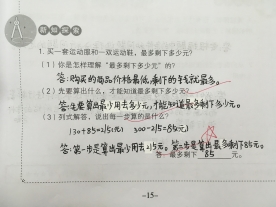 A
新知探索
1. 买一套运动服和一双运动鞋，最多剩下多少元?
(1) 你是怎样理解“最多剩下多少元”的?
答:购买的商品价格最低,剩下的钱就最多。
(2) 先要算出什么，才能知道最多剩下多少元?
答:先要算出最少用去多少元,才能知道最多剩下多少元。
(3) 列式解答，说出每一步算的是什么?
130+85=215(元) 300-215=85(元)
答:第一步是算出最少用去215元。第二步是算出最多剩下85元。
答：最多剩下 85 元。
-15-